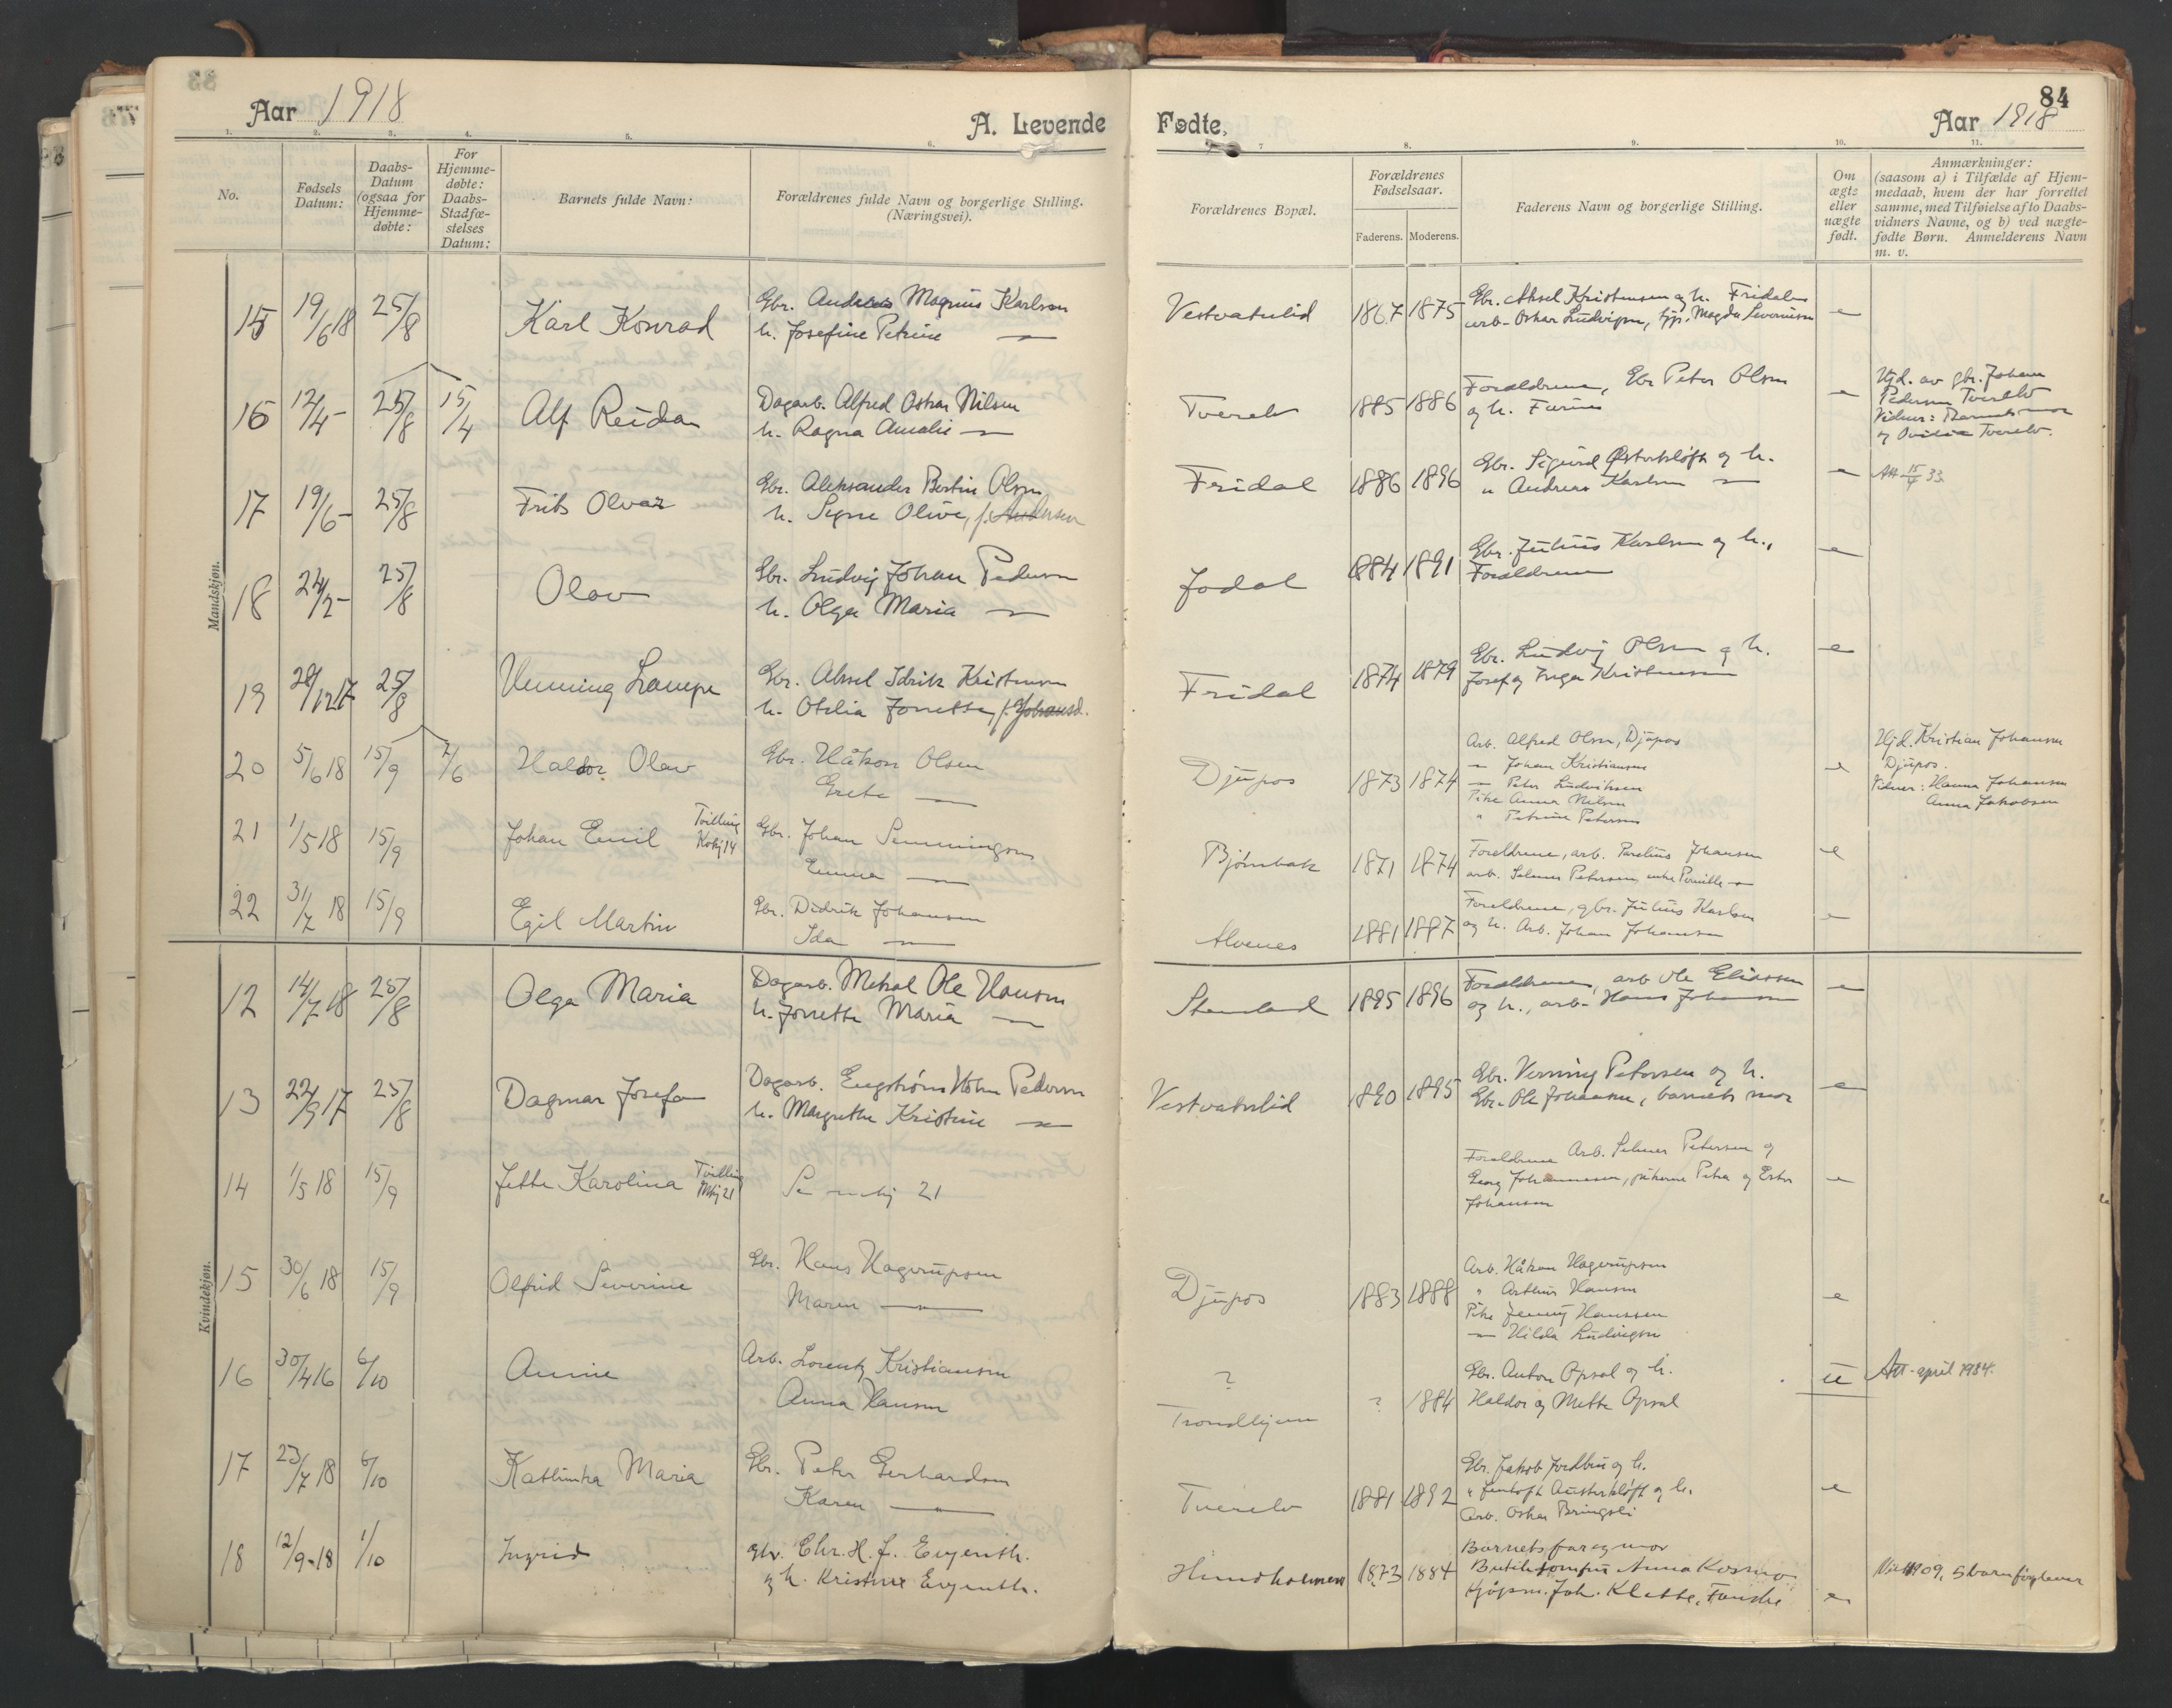 84
Aar 1918 A. Levende Fødte, Aar 1918
1. 2. 3. 4. 5. 6. 7 8. 9. 10. 11.
No.
Fødsels
Datum:
Daabs-
Datum
(ogsaa for
Hjemme-
døbte:
For
Hjemme-
døbte:
Daabs-
Stadfæ-
stelses
Datum:
Barnets fulde Navn:
Forældrenes fulde Navn og borgerlige Stilling.
(Næringsvei).
Forældrenes Bopæl.
Forældrenes
Fødselsaar.
Faderens. Moderens.
Faderens Navn og borgerlige Stilling.
Om
ægte
eller
uægte
født.
Anmærkninger:
(saasom a) i Tilfælde af Hjem-
medaab, hvem der har forrettet
samme, med Tilføielse af to Daabs-
vidners Navne, og b) ved uægte-
fødte Børn. Anmelderens Navn
m. v.
Mandskjøn.
15 19/6 18 25/8 Karl Konrad
Gbr. Andreas Magnus Karlsen
h. Josefine Petrine —
Vestvatnlid 1867 1875
Gbr. Aksel Kristensen og h. Fridalen
arb. Oskar Ludvigsen, tjp. Magda Severinsen
e
16 12/4 - 25/8 15/4 Alf Reidar
Dagarb. Alfred Oskar Nilsen
h. Ragna Amalie —
Tverelv 1885 1886
Forældrene, Gbr Peter Olsen
og h.
e
Hjd. av gbr. Johan
Pedersen Tverelv
Vidner: Barnets mor
og Tverelv.
17 19/6 - 25/8 Frits Olvar
Gbr. Aleksander Bertin Olsen
h. Signe Olive, f. Andersen
Fridal 1886 1896
Gbr. Sigurd Østerkløft og h.
" Andreas Karlsen —
e
Att 15/4 33.
18 24/2 - 25/8 Olav
Gbr. Ludvig Johan Pedersen
h. Olga Maria —
Jodal 1884 1891
Gbr. Julius Karlsen og h.,
Forældrene
e
19 28/12 17 25/8 Venning Lampe
Gbr. Aksel Idrik Kristensen
h. Otelia Jonette, f. Johansd.
Fridal 1874 1879
Gbr. Ludvig Olsen og h.
Josef og Inga Kristensen
e
20 5/6 18 15/9 7/6 Haldor Olav
Gbr. Håkon Olsen
Grete —
Djupos 1873 1874
Arb. Alfred Olsen, Djupos
— Johan Kristiansen
— Peter Ludviksen
Pike Anna Nilsen
" Petrine Petersen
e
Hjd. Kristian Johansen
Djupos.
Vidner: Hanna Johansen
Anna Jakobsen
21 1/5 18 15/9 Johan Emil Tvilling
Kvkj 14
Gbr. Johan Semmingsen
Emma —
Bjørnbak 1871 1874
Forældrene, arb. Parelius Johansen
arb. Selmer Petersen, enke Pernille —
e
22 31/7 18 15/9 Egil Martin
Gbr. Didrik Johansen
Ida —
Alvenes 1881 1887
Forældrene, gbr. Julius Karlsen
og h. Arb. Johan Johansen
e
Kvindekjøn.
12 14/7 18 25/8 Olga Maria
Dagarb. Metral Ole Hansen
h. Jonette Maria —
Stensland 1895 1896
Forældrene, arb Ole Eliassen
og h., arb. Hans Johansen
e
13 22/9 17 25/8 Dagmar Josefa
Dagarb. Engstrøm Holm Pedersen
h. Margrethe Kristine —
Vestvatnlid 1890 1895
Gbr. Venning Petersen og h.
Gbr. Ole Johansen, barnets mor
e
14 1/5 18 15/9 Jette Karolina Tvilling
Mkj 21
Se mkj 21
Forældrene Arb. Selmer Petersen og
Georg Johannesen, pikerne Petra og Ester
Johansen
e
15 30/6 18 15/9 Olfrid Severine
Gbr. Hans Hagerupsen
Maren —
Djupos 1883 1888
Arb. Håkon Hagerupsen
" Arthur Hansen
Pike Jenny Hanssen
— Hilda Ludvigsen
e
16 30/4 16 6/10 Annie
Arb. Lorentz Kristiansen
Anna Hansen
?
Trondhjem ? 1884
Gbr. Anton Opsal og h.
Haldor og Mette Opsal
u
Att. april 1934.
17 23/7 18 6/10 Kathinka Maria
Gbr. Peter Gerhardsen
Karen —
Tverelv 1881 1892
Gbr. Jakob Jordbru og h.
" Jentoft Austerkløft og h.
Arb. Oskar Bringsli
e
18 12/9-18 1/10 Ingrid
Gbr. Chr. H. J. Evjenth.
og h. Kristine Evjenth.
Hundholmen 1873 1884
Barnets far og mor
Butikkjomfru Anna Kosmo
Kjøpm. Joh. Klette, Fauske
e
Viet 1909, 5 barn før, lever